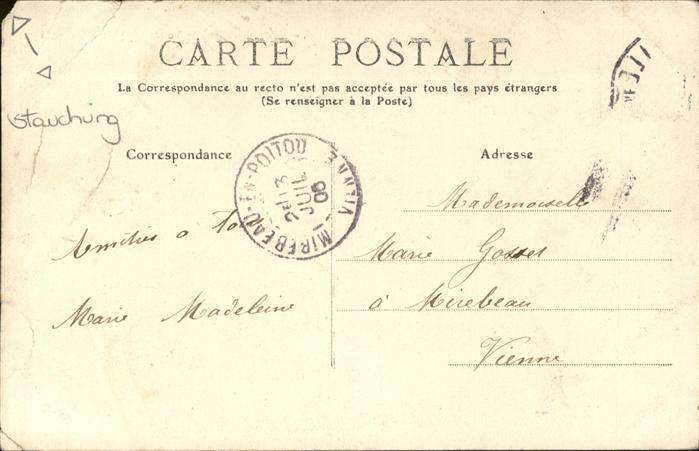 CARTE POSTALE
La Correspondance au recto n'est pas acceptée par tous les pays étrangers
(Se renseigner à la Poste)
Stauchung
Correspondance
Adresse
MIREBEAU-EN-POITOU
VIENNE
13
JUIL
06
Amitiés a
Marie Madeleine
Mademoiselle
Marie Gosset
à Mirebeau
Vienne